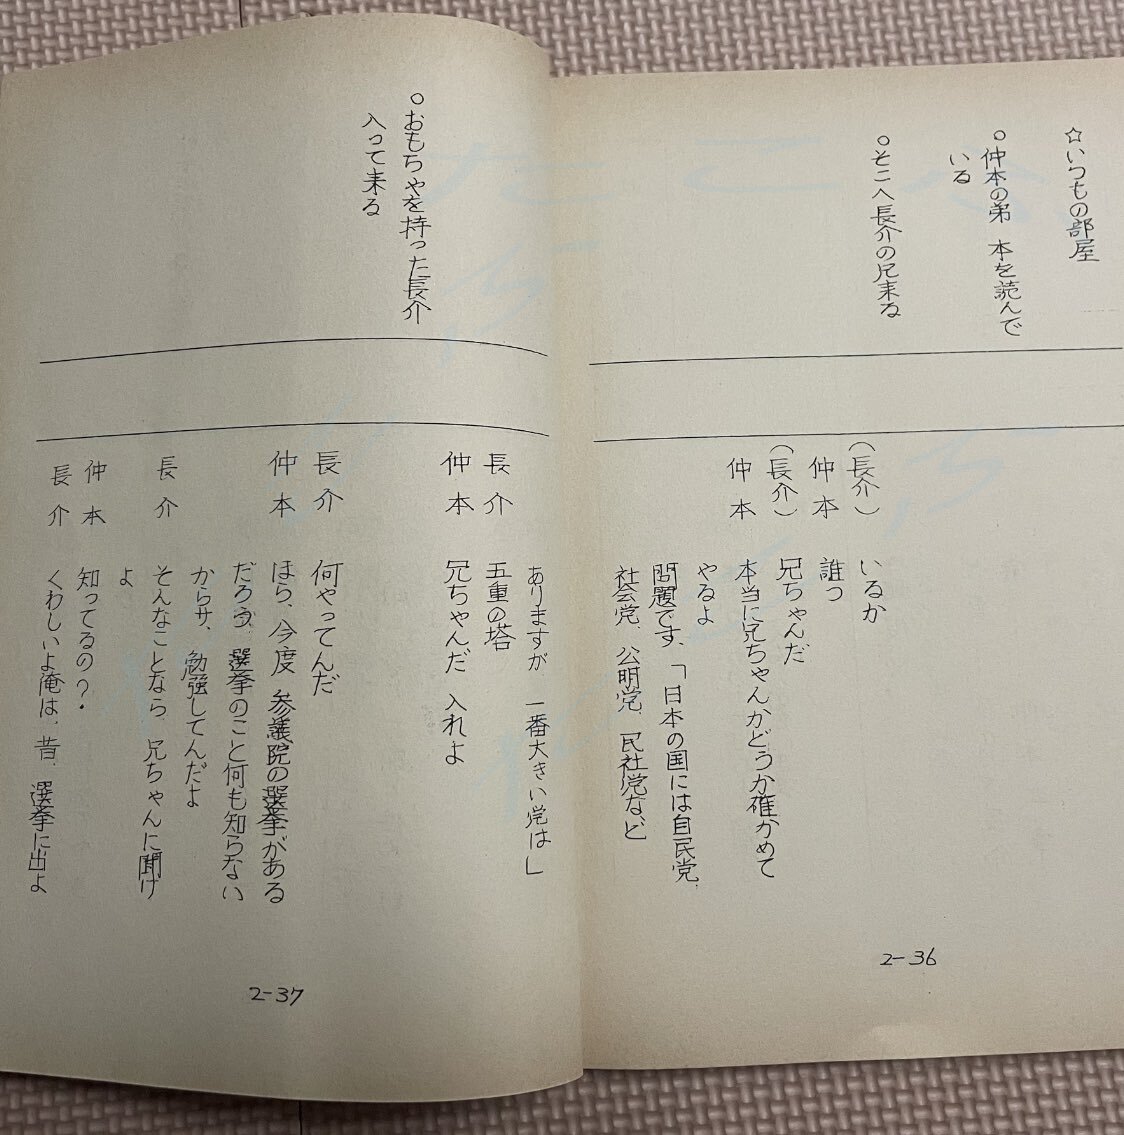 ☆いつもの部屋
○仲本の弟 本を読んで
いる
○そこへ長介の兄来る
（長介） いるか
仲本 誰っ
（長介） 兄ちゃんだ
仲本 本当に兄ちゃんかどうか確かめて
やるよ
問題です、「日本の国には自民党、
社会党、公明党、民社党など
2-36
○おもちゃを持った長介
入って来る
ありますが 一番大きい党は」
長介 五重の塔
仲本 兄ちゃんだ 入れよ
長介 何やってんだ
仲本 ほら、今度 参議院の選挙がある
だろう、選挙のこと何も知らない
からサ、勉強してんだよ
長介 そんなことなら、兄ちゃんに聞け
よ
仲本 知ってるの？
長介 くわしいよ俺は、昔、選挙に出よ
2-37